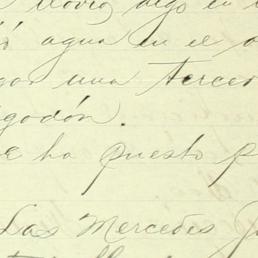 llovió algo en
ó agua en el
por una tercer
godón.
e ha puesto p
Las Mercedes Ju